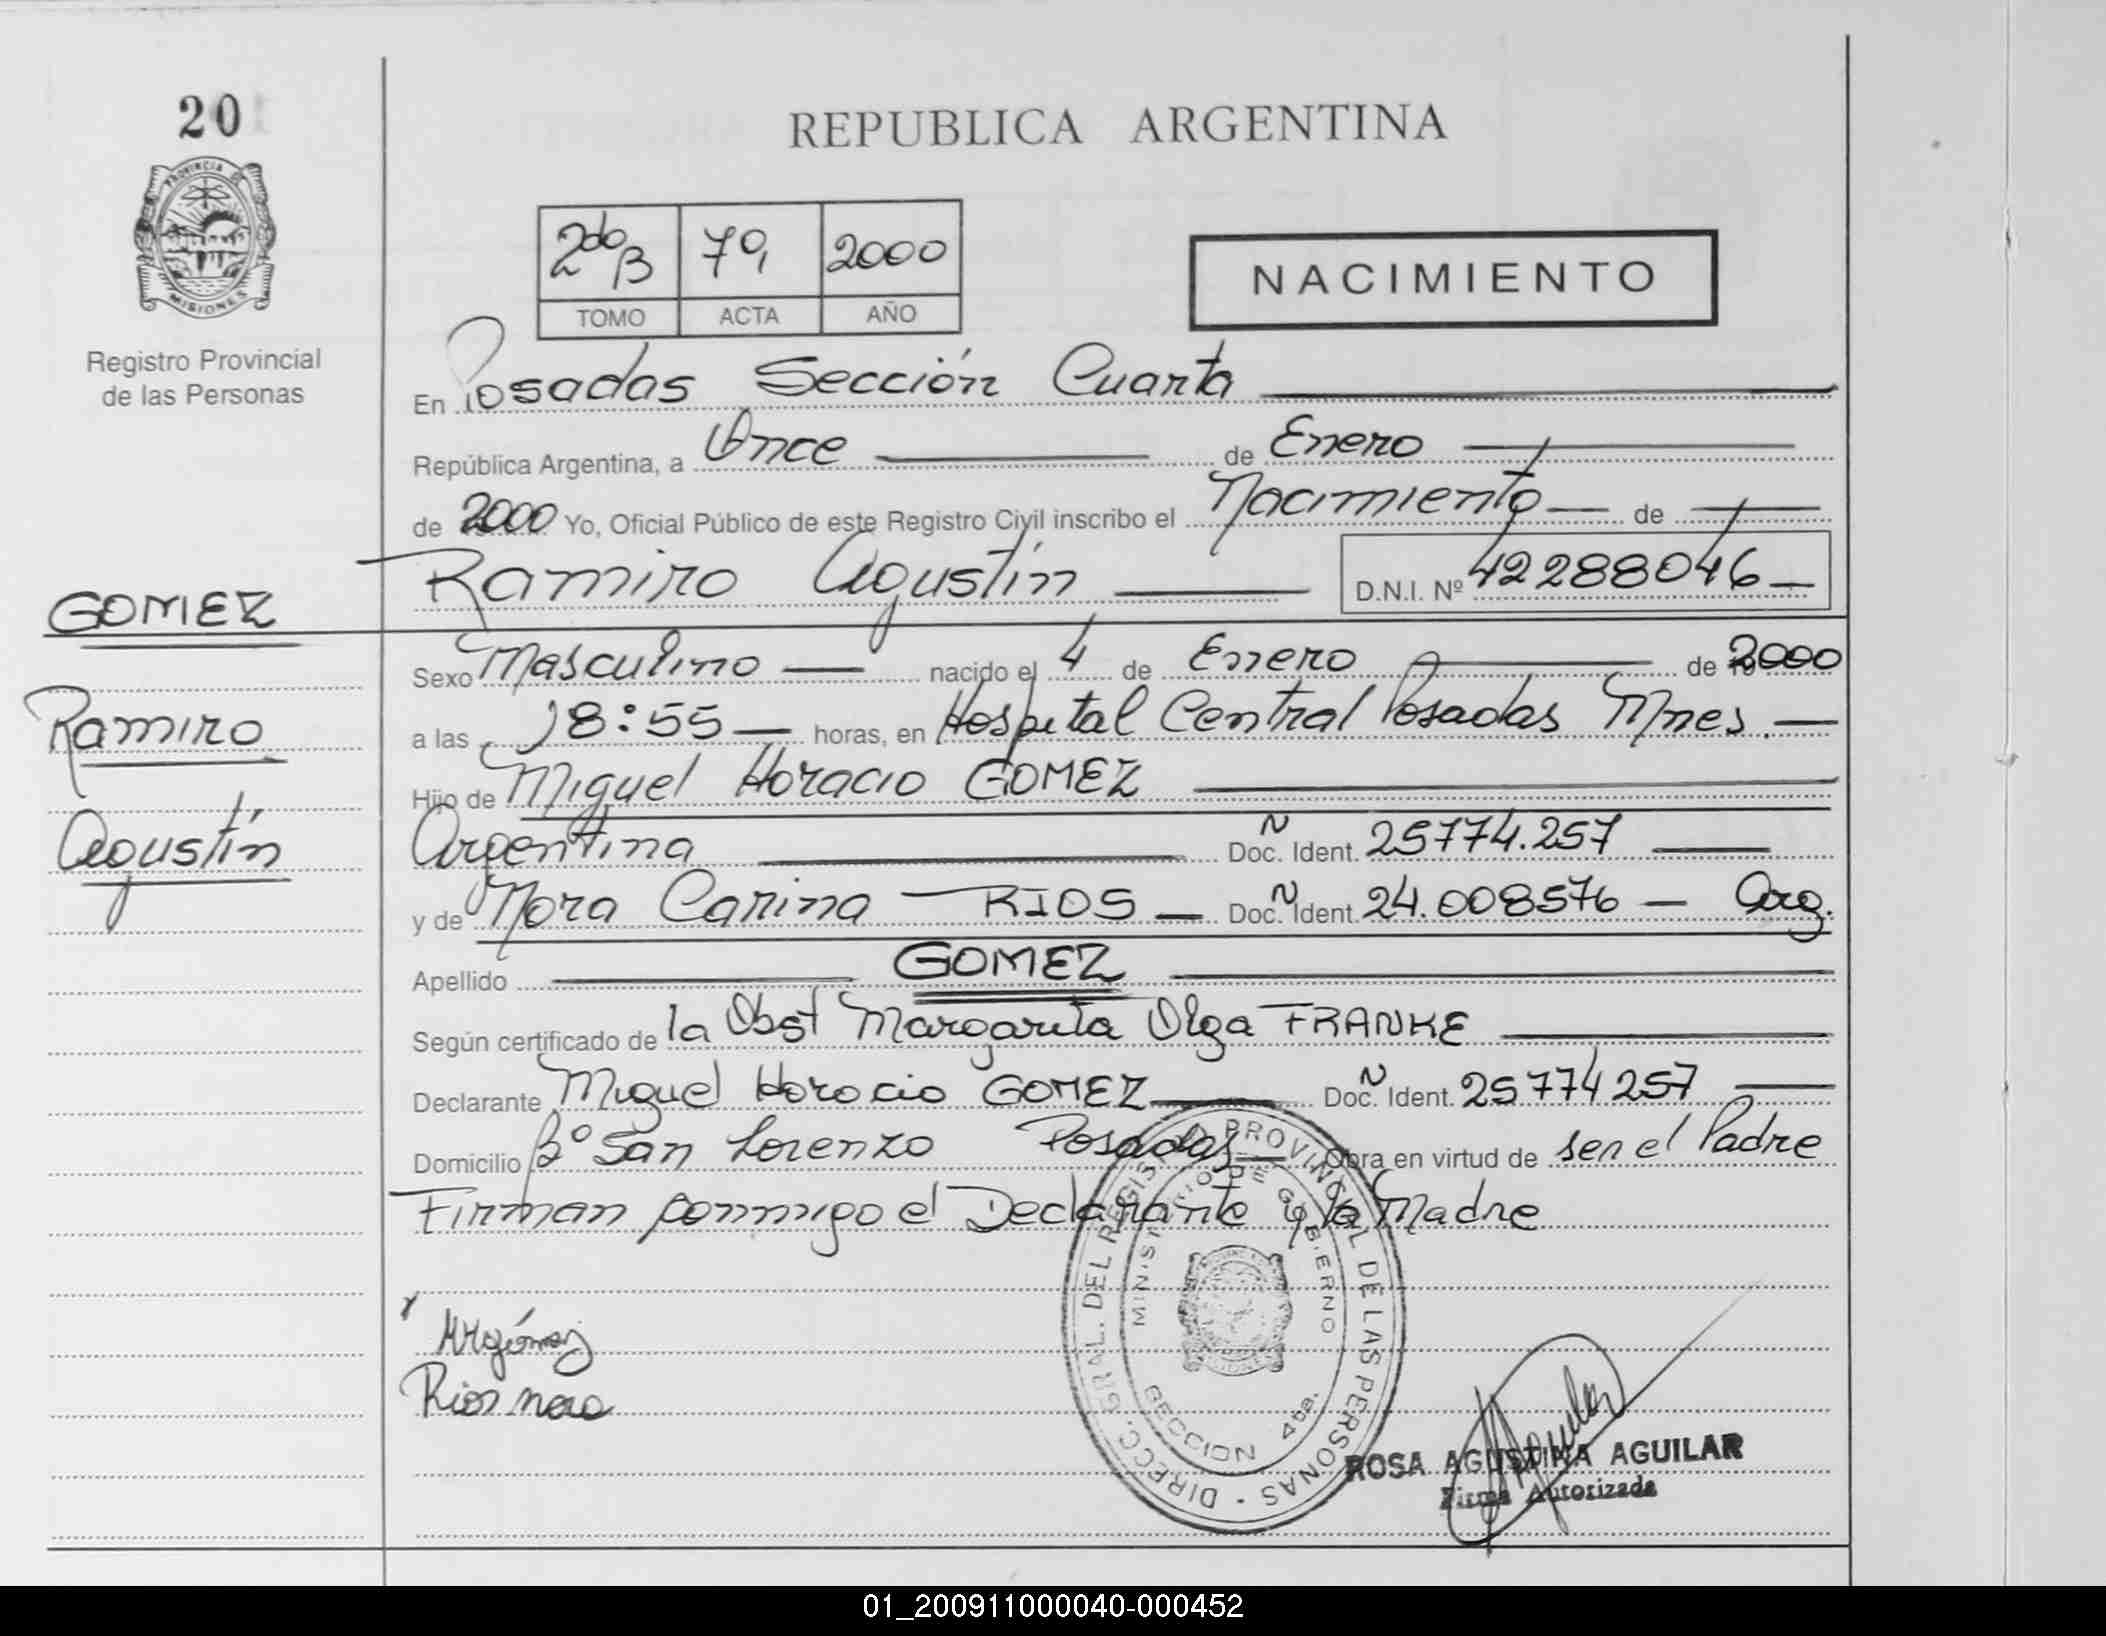 20
PROVINCIA DE
MISIONES
Registro Provincial
de las Personas
REPUBLICA ARGENTINA
2do B 79 2000
TOMO ACTA AÑO
NACIMIENTO
En Posadas Sección Cuarta
República Argentina, a Once de Enero
de 2000 Yo, Oficial Público de este Registro Civil inscribo el Nacimiento de
Ramiro Agustín D.N.I. Nº 42288046
GOMEZ
Ramiro
Agustín
Sexo Masculino nacido el 4 de Enero de 2000
a las 18:55 horas, en Hospital Central Posadas Mnes.
Hijo de Miguel Horacio GOMEZ
Argentina Doc. Ident. N 25774.257
y de Nora Carina RIOS Doc. N Ident. 24.008576 Arg.
Apellido GOMEZ
Según certificado de la Obst Margarita Olga FRANKE
Declarante Miguel Horacio GOMEZ Doc. N Ident. 25774257
Domicilio Bº San Lorenzo Posadas Obra en virtud de ser el Padre
Firman conmigo el Declarante y la Madre
DIRECC. GRAL. DEL REGISTRO PROVINCIAL DE LAS PERSONAS
MINISTERIO DE GOBIERNO
SECCION 4ta.
MHgómez
Rios nora
Aguilar
ROSA AGUSTINA AGUILAR
Firma Autorizada
01_200911000040-000452